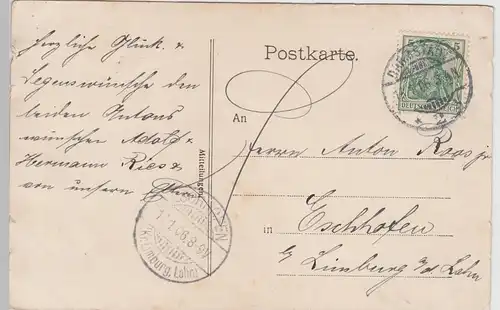 Postkarte.
Herzliche Glück- &
Segenswünsche den
beiden Antons
wünschen Adolf &
Hermann Ries &
von unsern
Mitteilungen
An
Herrn Anton Roos jr.
in
Eschhofen
b/ Limburg a/d Lahn
5 5
DEUTSCHES REICH
(Kr. Limburg, Lahn)